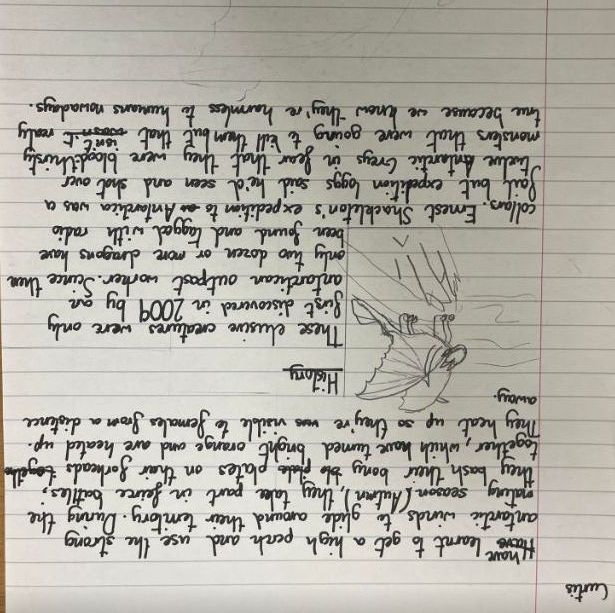 Curtis
have learnt to get a high perch and use the strong
antartic winds, to glide around their territory. During the
mating season (Autmn), they take part in feirce battles;
they bash their bony plates on their forheads
together, which have turned bright orange and are heated up.
They heat up so they're visible to females from a distence
away.
History
These elusive creatures were only
first discovered in 2009 by an
antarctican outpost worker. Scince then
only two dozen or more dragons have
been found and tagged with radio
collars. Ernest Shackleton's expedition to Antarctica was a
fail but expedition loggs said he'd seen and shot over
twelve Antarctic Greys in fear that they were bloodthirsty
monsters that were going to kill them but that isn't really
true because we know they're harmless to humans nowadays.